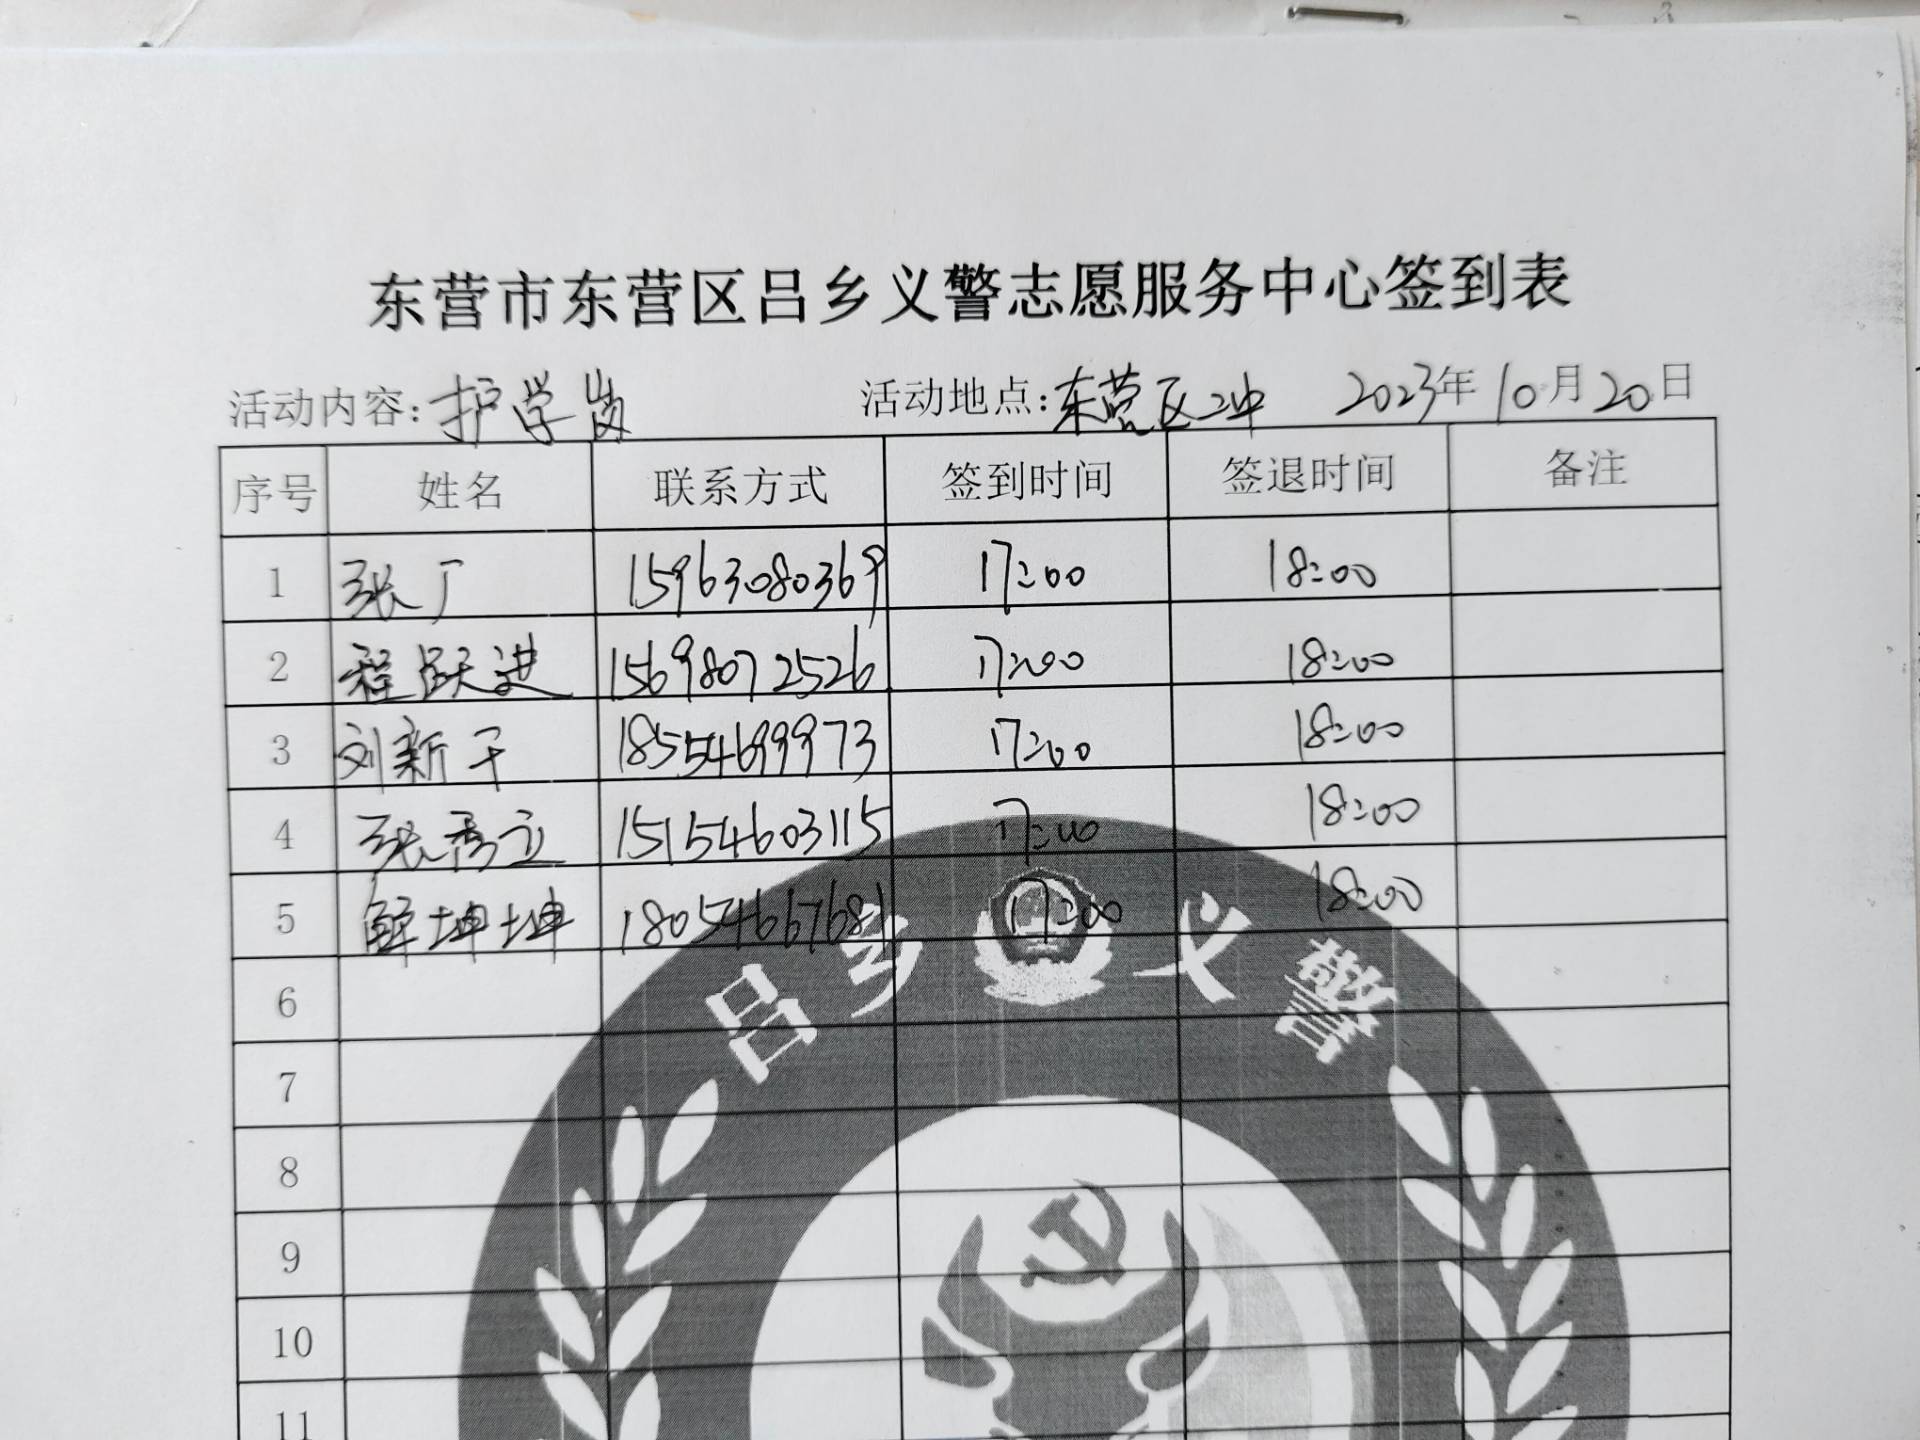 东营市东营区吕乡义警志愿服务中心签到表
活动内容：护学岗 活动地点：东营区二中 2023年10月20日
序号 姓名 联系方式 签到时间 签退时间 备注
1 张广 15963080369 17:00 18:00
2 程跃进 15698072526 17:00 18:00
3 刘新干 18554699973 17:00 18:00
4 张秀立 15154603115 17:00 18:00
5 解坤坤 18054667681 17:00 18:00
6
7
8
9
10
11
吕乡义警